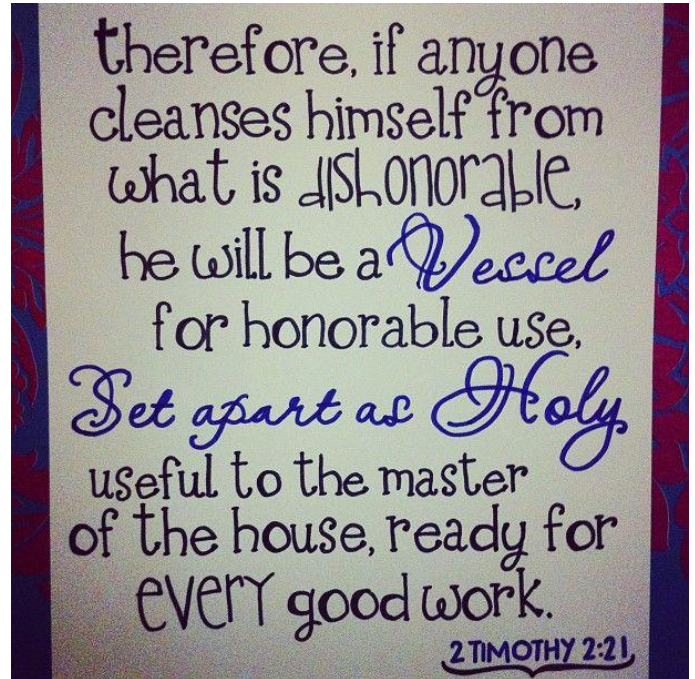 therefore, if anyone
cleanses himself from
what is dishonorable,
he will be a Vessel
for honorable use,
Set apart as Holy
useful to the master
of the house, ready for
every good work.
2 TIMOTHY 2:21